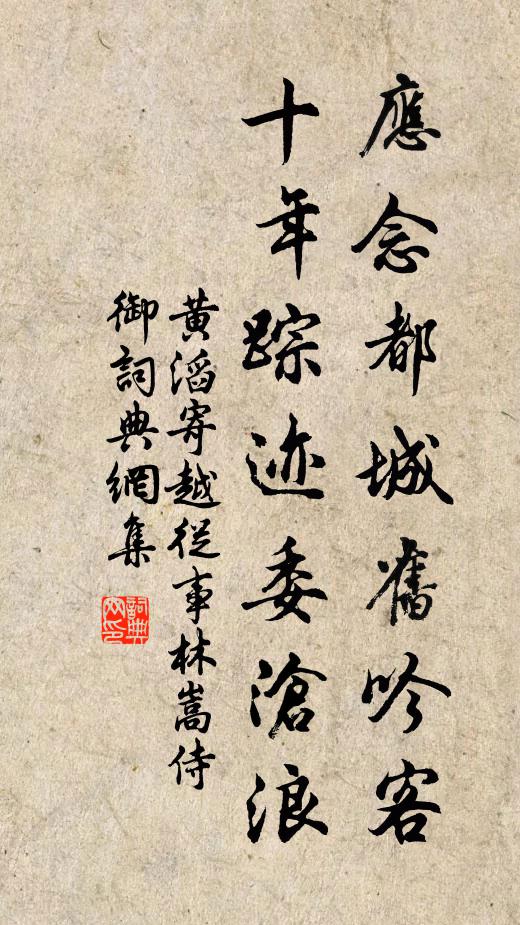 應念都城舊吟客
十年踪迹委滄浪
黃滔寄越從事林嵩侍
御詞典網集
詞典
网印